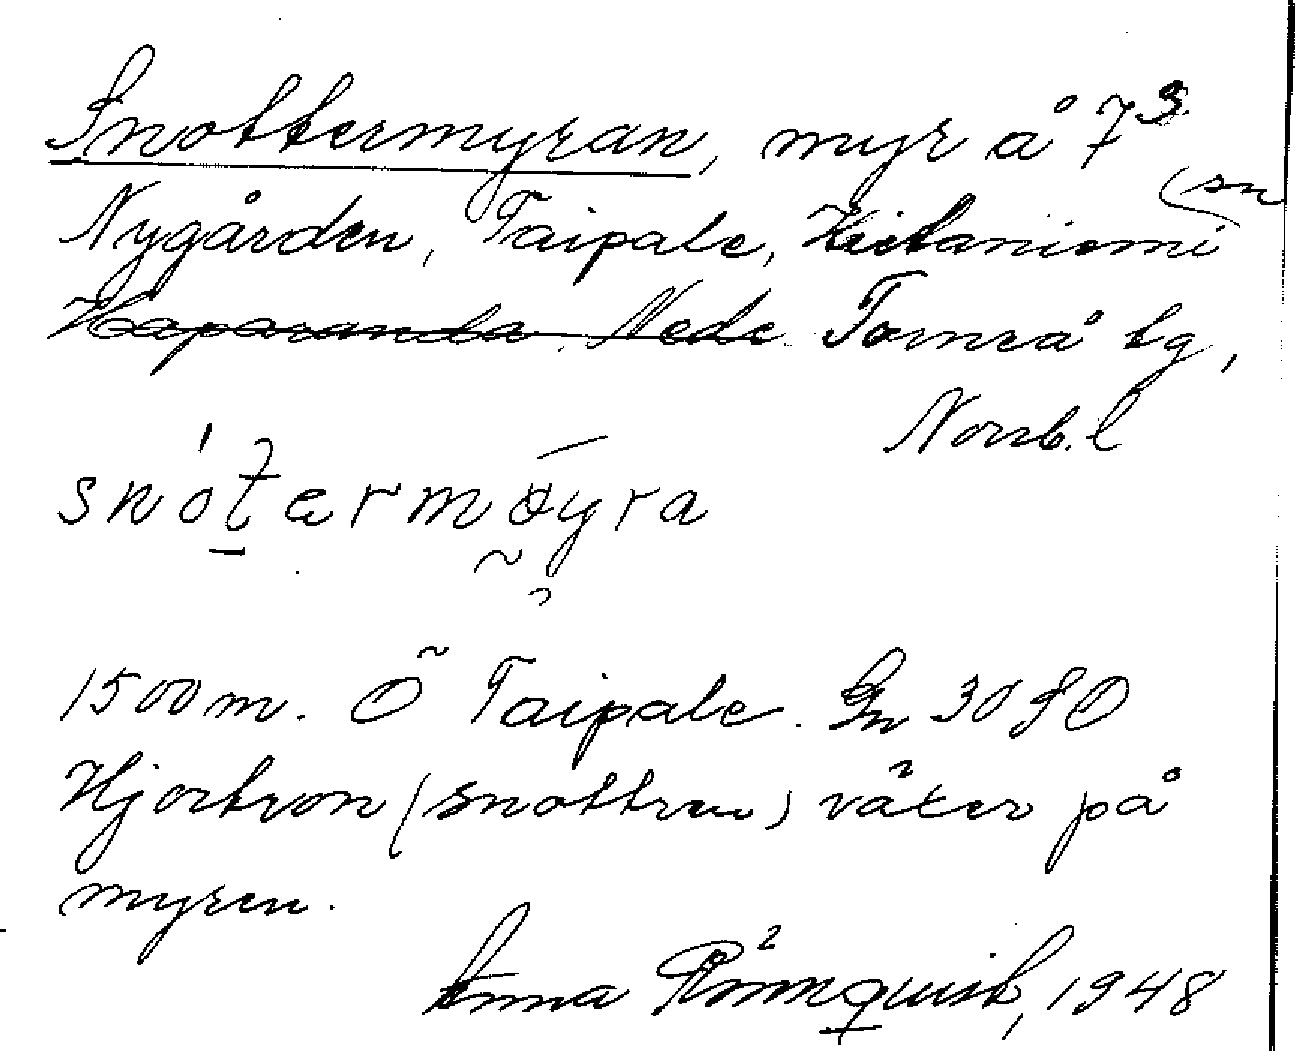 Snottermyran, myr å 7³
Nygården, Taipale, Hietaniemi (sn
Haparanda. Nede. Torneå tg,
Norrb. l
1500 m. Ö Taipale. Gn 30 SO
Hjortron (snottren) växer på
myren.
Anna Rönnquist, 1948